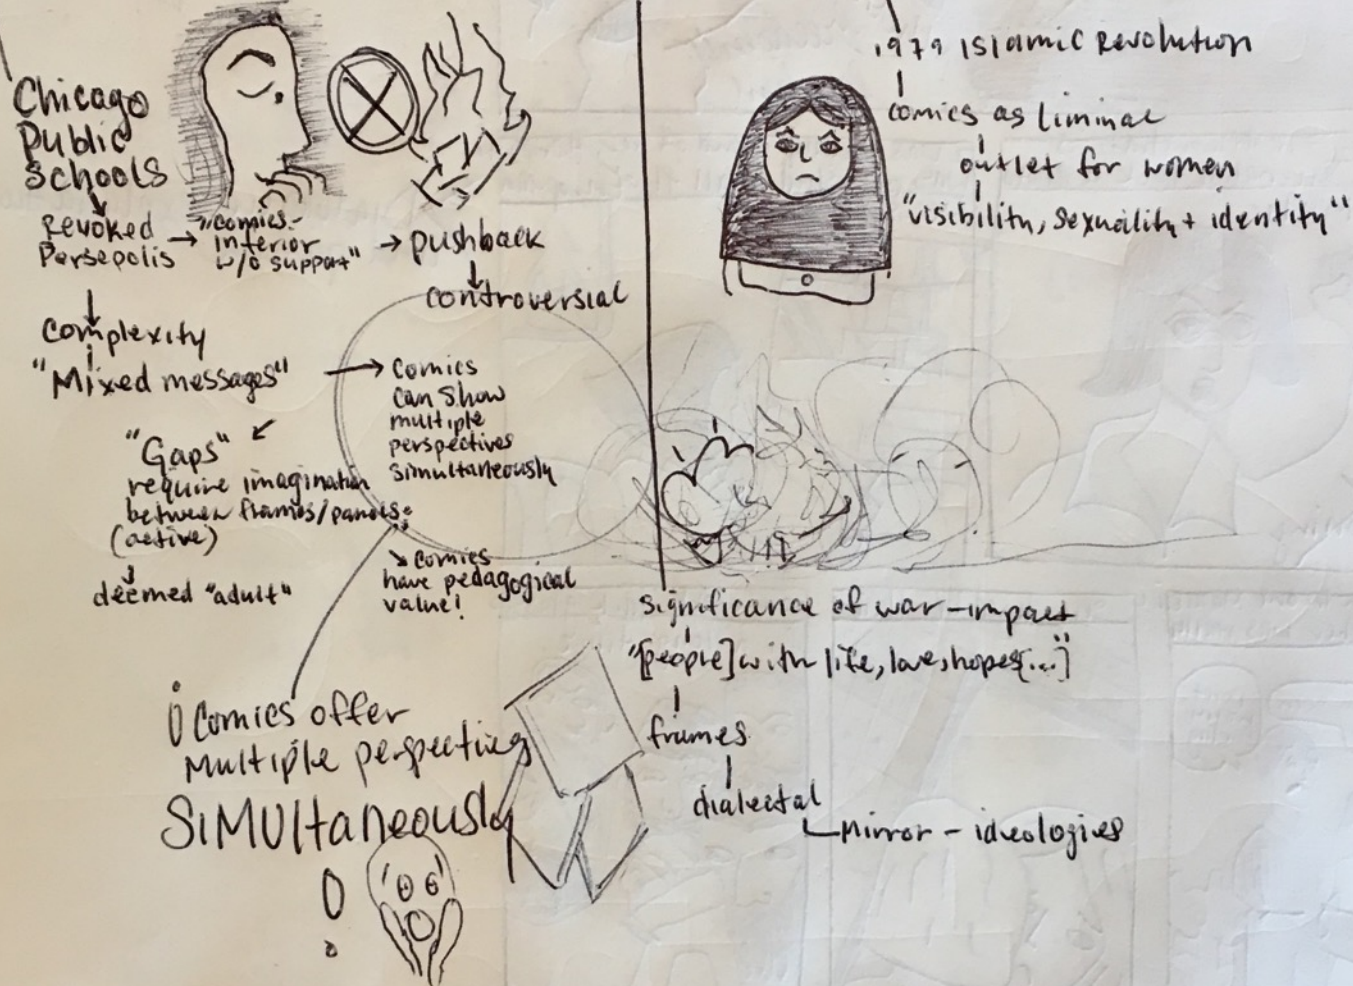 Chicago
Public
Schools
Revoked
Persepolis
"comics-
inferior
w/o support"
pushback
controversial
complexity
"Mixed messages"
comics
can show
multiple
perspectives
simultaneously
"Gaps"
require imagination
between frames/panels
(active)
deemed "adult"
comics
have pedagogical
value!
Comics offer
multiple perspectives
SiMUltaneously
!
1979 Islamic Revolution
comics as liminal
outlet for women
"visibility, sexuality + identity"
significance of war-impact
"[people] with life, love, hopes[...]"
frames
dialectal
mirror - ideologies